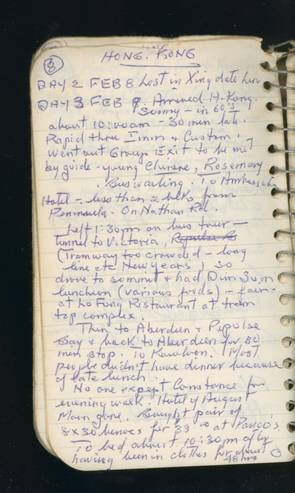 8
HONG-KONG
DAY 2 FEB 8 Lost in Xing date line
DAY 3 FEB 9. Arrived H. Kong.
Sunny - in 60's
about 10:00am - 30 min late.
Rapid thru Immi & Custom.
Went out Group Exit to be met
by guide - young Chinese, Rosemary
Bus waiting. To Ambassador
Hotel - less than 2 blks from
Peninsula. On Nathan Rd.
Left 1:30 pm on bus tour -
tunnel to Victoria,
(Tramway too crowded - long
line etc New Years) so
drove to summit & had Dim Sum
luncheon (various foods) -
at Lo Fung Restaurant at tram
top complex.
Then to Aberdeen & Repulse
Bay & back to Aberdeen for
min stop. To Kowloon. Most
people didn't have dinner because
of late lunch.
No one expect Constance for
evening walk. Hotel of August
Moon gone. Bought pair of
8x30 for 33 at
To bed about 10:30 pm after
having been in clothes for about
48 hrs